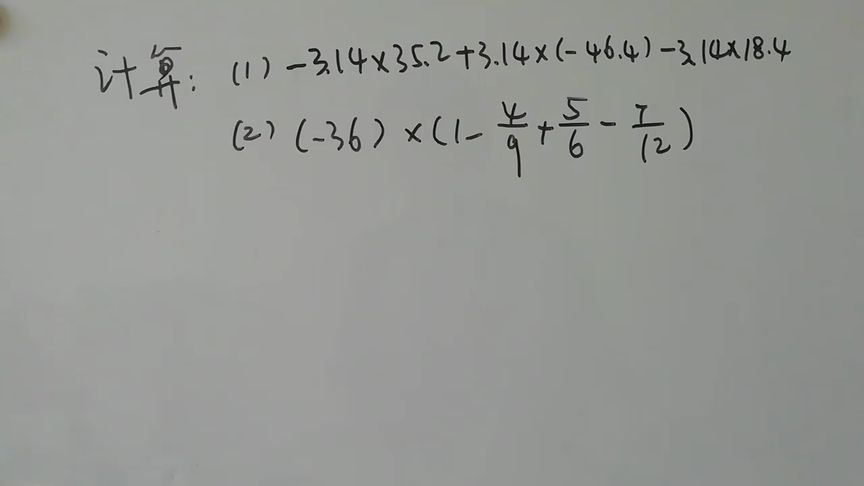 计算: (1) -3.14×35.2+3.14×(-46.4)-3.14×18.4
(2) (-36)×(1-4/9+5/6-7/12)